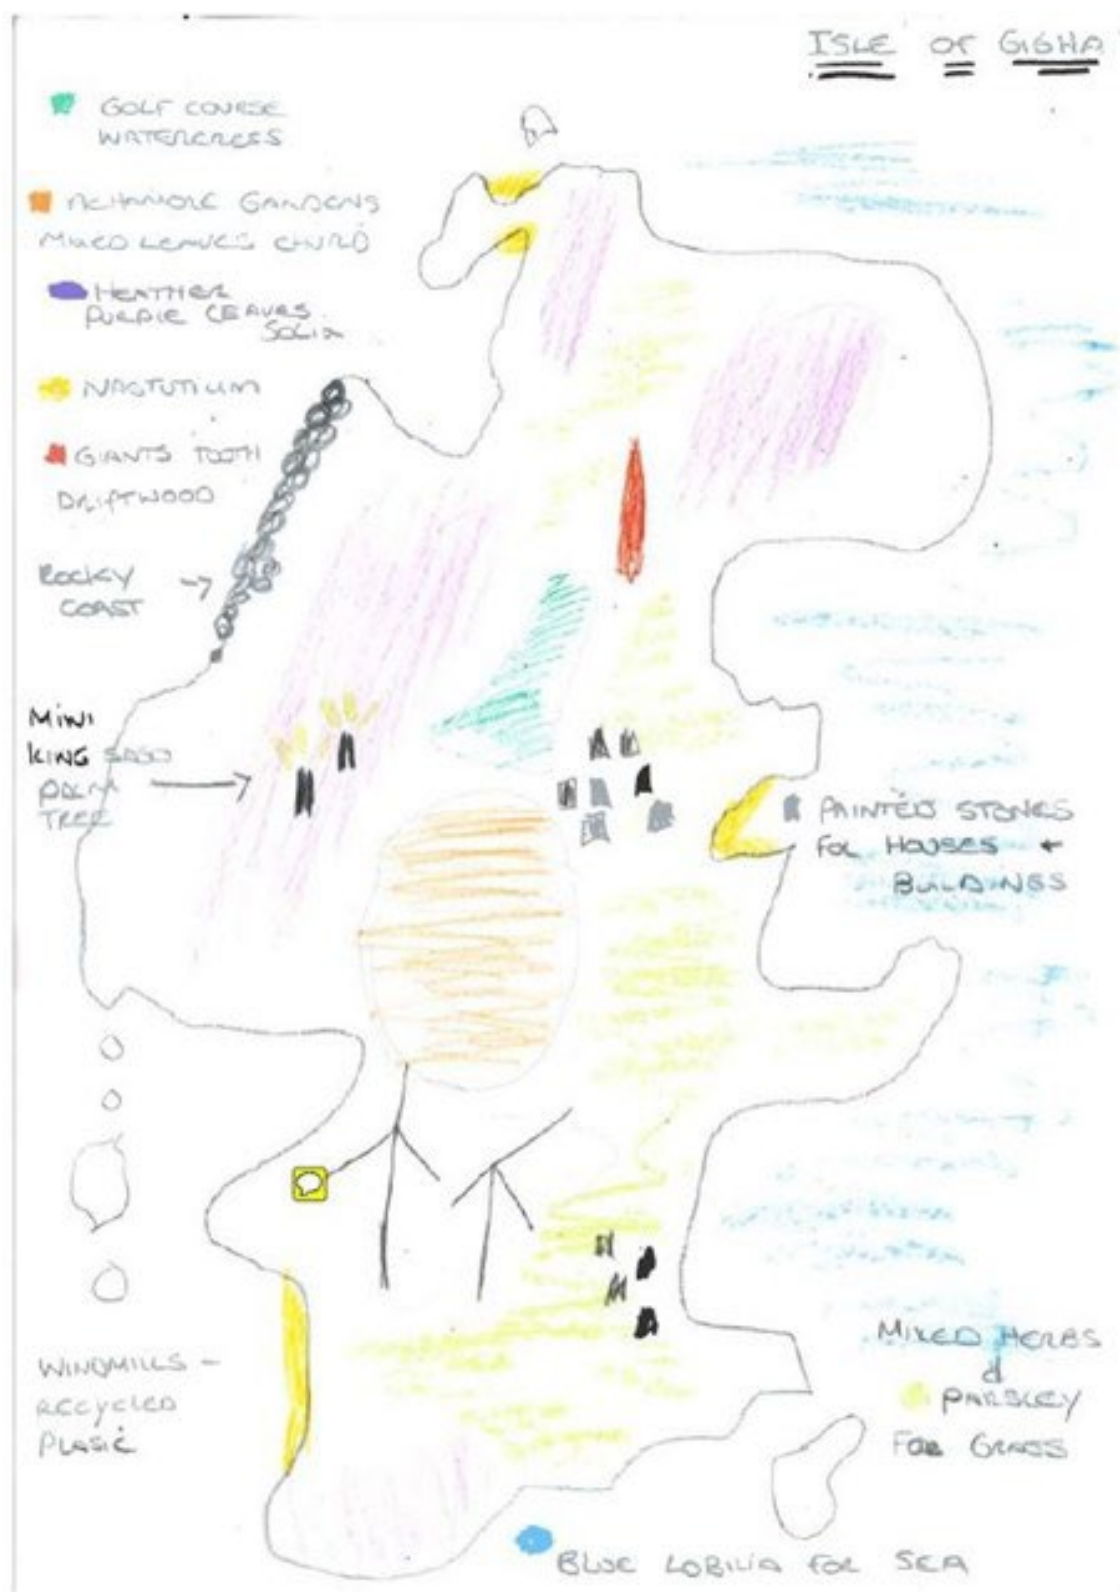 ISLE OF GIGHA
GOLF COURSE
WATERCRESS
ACHAMORE GARDENS
MIXED LEAVES
HEATHER
PURPLE LEAVES
NASTUTIUM
GIANTS TOOTH
DRIFTWOOD
ROCKY
COAST
MINI
KING SAGO
PALM
TREE
PAINTED STONES
FOR HOUSES +
BUILDINGS
WINDMILLS -
RECYCLED
PLASIC
MIXED HERBS
&
PARSLEY
FOR GRASS
BLUE LOBILIA FOR SEA